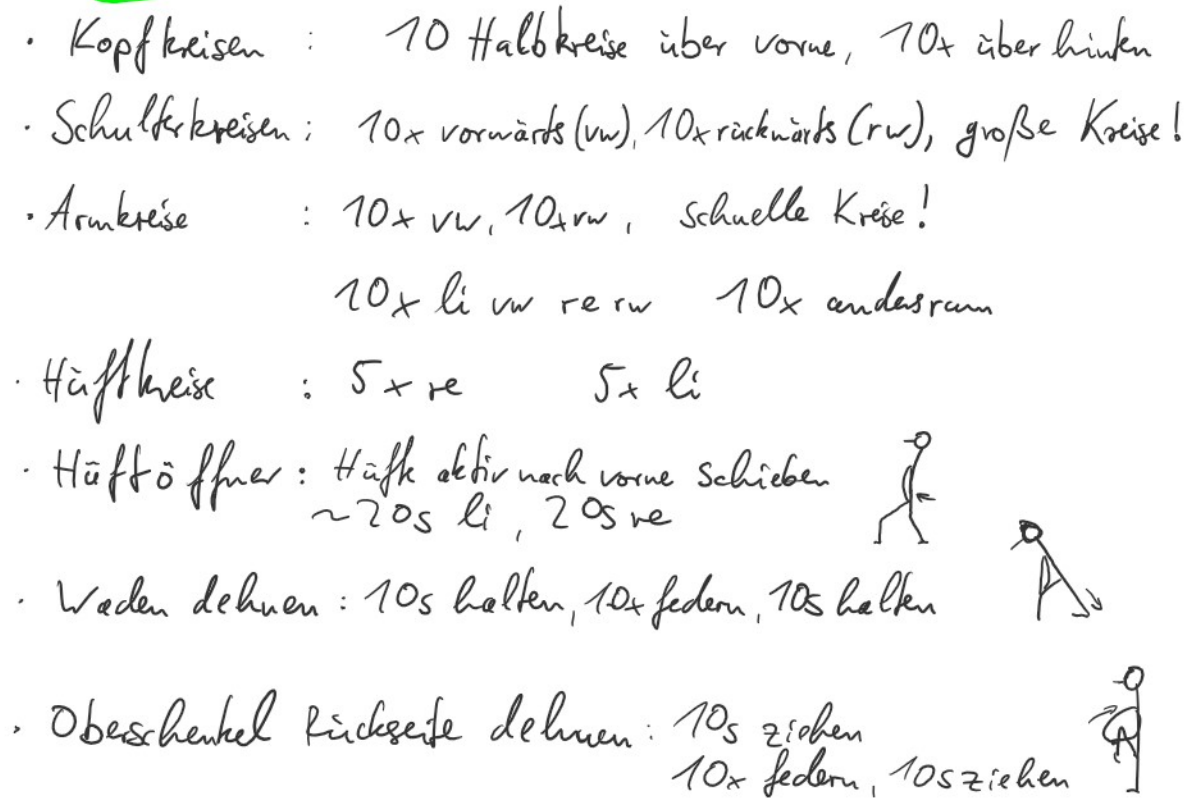 · Kopfkreisen : 10 Halbkreise über vorne, 10x über hinten
· Schulterkreisen: 10x vorwärts (vw), 10x rückwärts (rw), große Kreise!
· Armkreise : 10x vw, 10x rw, schnelle Kreise!
10x li vw re rw 10x andersrum
· Hüftkreise : 5x re 5x li
· Hüftöffner: Hüfte aktiv nach vorne schieben
~20s li, 20s re
· Waden dehnen: 10s halten, 10x federn, 10s halten
· Oberschenkel Rückseite dehnen: 10s ziehen
10x federn, 10s ziehen